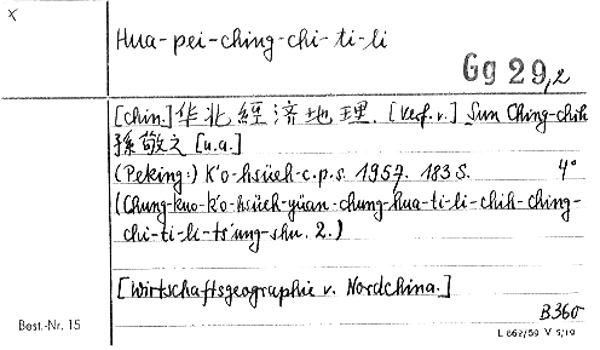 x
Hua-pei-ching-chi-ti-li
Gg 29,2
[chin.] 华北經済地理. [Verf. v.] Sun Ching-chih
孫敬之 [u.a.]
(Peking:) K'o-hsüeh-c.p.s. 1957. 183 S. 4°
(Chung-kuo-k'o-hsüeh-yüan-chung-hua-ti-li-chih-ching-
chi-ti-li-ts'ung-shu. 2.)
[Wirtschaftsgeographie v. Nordchina.]
B360
Best.-Nr. 15
L 662/59 V 5/19